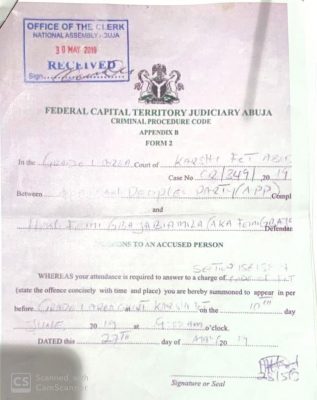 OFFICE OF THE CLERK
NATIONAL ASSEMBLY ABUJA
30 MAY 2019
RECEIVED
Sign
FEDERAL CAPITAL TERRITORY JUDICIARY ABUJA
CRIMINAL PROCEDURE CODE
APPENDIX B
FORM 2
In the GRADE 1 AREA Court of KARSHI FCT ABUJ
Case No CR/349/2019
Between PEOPLES PARTY/APP Compl
and
HON. FEMI GBAJABIAMILA (AKA FEMI
Defenda
ONS TO AN ACCUSED PERSON
WHEREAS your attendance is required to answer to a charge of
(state the offence concisely with time and place) you are hereby summoned to appear in per
before GRADE 1 AREA COURT KARSHI on the 10th day
JUNE 2019 at 9:00 AM o'clock.
DATED this 27th day of MAY 2019
Signature or Seal
CS
Scanned with
CamScanner